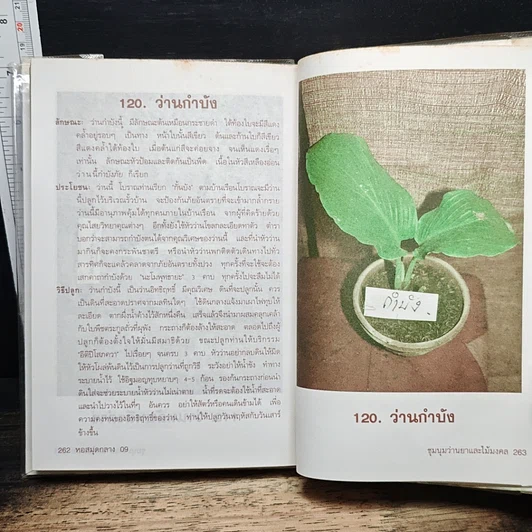 120. ว่านกำบัง
ลักษณะ: ว่านกำบังนี้ มีลักษณะต้นเหมือนกระชายดำ ใต้ท้องใบจะมีสีแดง
คล้ำอยู่รอบๆ เป็นทาง หน้าใบนั้นสีเขียว ต้นและก้านใบก็สีเขียว
สีแดงคล้ำใต้ท้องใบ เมื่อต้นแก่สีจะค่อยจาง จนเห็นแดงเรื่อๆ
เท่านั้น ลักษณะหัวป้อมและติดกันเป็นพืด เนื้อในหัวสีเหลืองอ่อน
ว่านนี้กำบังภัย ก็เรียก
ประโยชน์: ว่านนี้ โบราณท่านเรียก "กันบัง" ตามบ้านเรือนโบราณจะมีว่าน
นี้ปลูกไว้บริเวณรั้วบ้าน จะป้องกันภัยอันตรายที่จะเข้ามากล้ำกราย
ว่านนี้มีอานุภาพคุ้มได้ทุกคนภายในบ้านเรือน จากผู้ที่คิดร้ายด้วย
คุณไสยวิทยาคุณต่างๆ อีกทั้งยังใช้หัวว่านโขลกละเอียดทาตัว ตำรา
บอกว่าจะสามารถกำบังตนได้จากคุณวิเศษของว่านนี้ และที่นำหัวว่าน
มากินก็จะคงกระพันชาตรี หรือนำหัวว่านพกติดตัวเดินทางไปทั่ว
สารทิศก็จะแคล้วคลาดจากภัยอันตรายทั้งปวง ทุกครั้งที่ใช้จะต้อง
เสกคาถากำบังด้วย "นะโมพุทธายะ" 3 คาบ ทุกครั้งไปจะลืมไม่ได้
วิธีปลูก: ว่านกำบังนี้ เป็นว่านอิทธิฤทธิ์ มีคุณวิเศษ ดินที่จะปลูกนั้น ควร
เป็นดินที่สะอาดปราศจากมลทินใดๆ ใช้ดินกลางแจ้งมาเผาไฟทุบให้
ละเอียด ตากผึ่งน้ำค้างไว้สักหนึ่งคืน เสร็จแล้วจึงนำมาผสมคลุกเคล้า
กับใบพืชตระกูลถั่วที่ผุพัง กระถางก็ต้องล้างให้สะอาด ตลอดไปถึงผู้
ปลูกก็ต้องตั้งใจให้มั่นมีสมาธิด้วย ขณะปลูกท่านให้บริกรรม
"อิติปิโสภควา" ไปเรื่อยๆ จนครบ 3 คาบ หัวว่านอย่ากลบดินให้มิด
ให้หัวโผล่พ้นดินไว้เป็นการปลูกว่านที่ถูกวิธี ระวังอย่าให้น้ำขัง ทำทาง
ระบายน้ำไว้ ใช้อิฐมอญทุบหยาบๆ 4-5 ก้อน รองก้นกระถางก่อนนำ
ดินใส่จะช่วยระบายน้ำหัวว่านไม่เน่าตาย น้ำที่รดจะต้องใช้น้ำที่สะอาด
และนำไปวางไว้ในที่ๆ อันควร อย่าให้สัตว์หรือคนเดินข้ามได้ เพื่อ
ความคงทนของอิทธิฤทธิ์ของว่าน ท่านให้ปลูกวันพฤหัสกับวันเสาร์
ข้างขึ้น
262 หอสมุดกลาง 09
กำบัง
120. ว่านกำบัง
ชุมนุมว่านยาและไม้มงคล 263